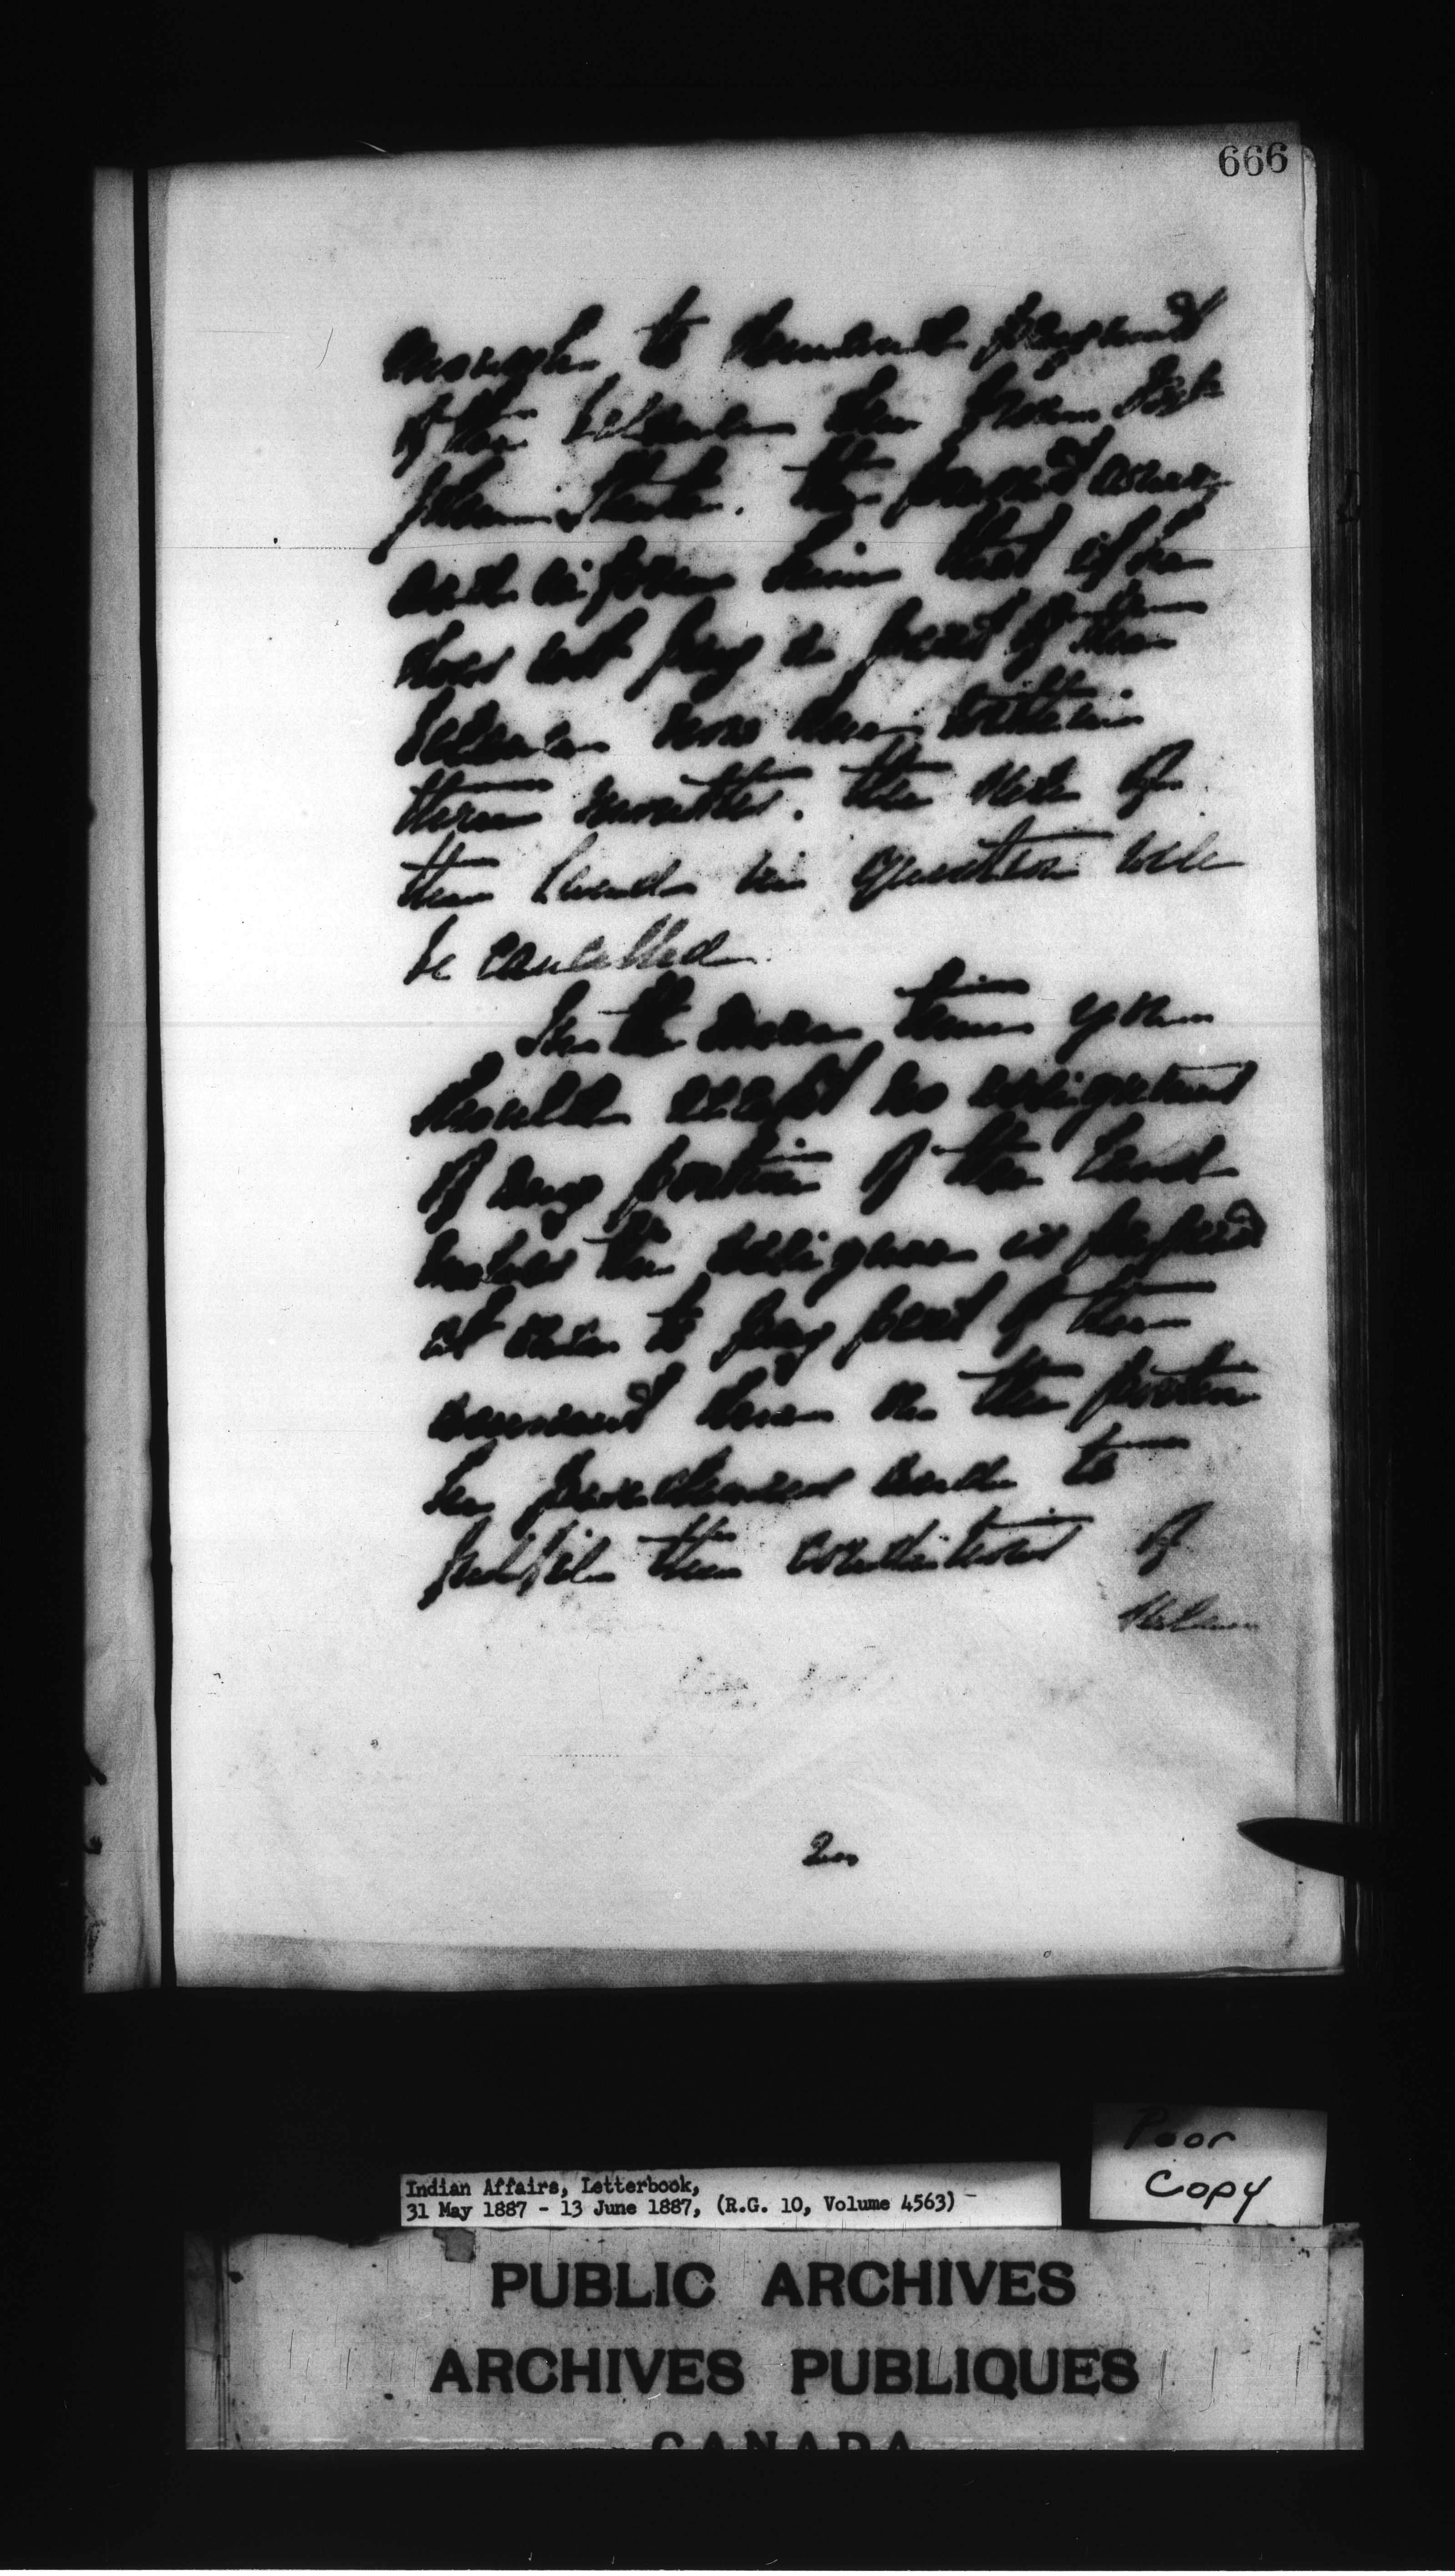 666
to demand payment
of the balance due from
John the present owner
and inform him that if he
does not pay a part of the
balance now due within
three months, the sale of
the land in question will
be cancelled
In the mean time you
should accept no assignment
of any portion of the land
unless the assignee is prepared
at once to pay part of the
amount due on the portion
he purchased and to
fulfil the conditions of
Sale
Poor
Copy
Indian Affairs, Letterbook,
31 May 1887 - 13 June 1887, (R.G. 10, Volume 4563)
PUBLIC ARCHIVES
ARCHIVES PUBLIQUES
CANADA